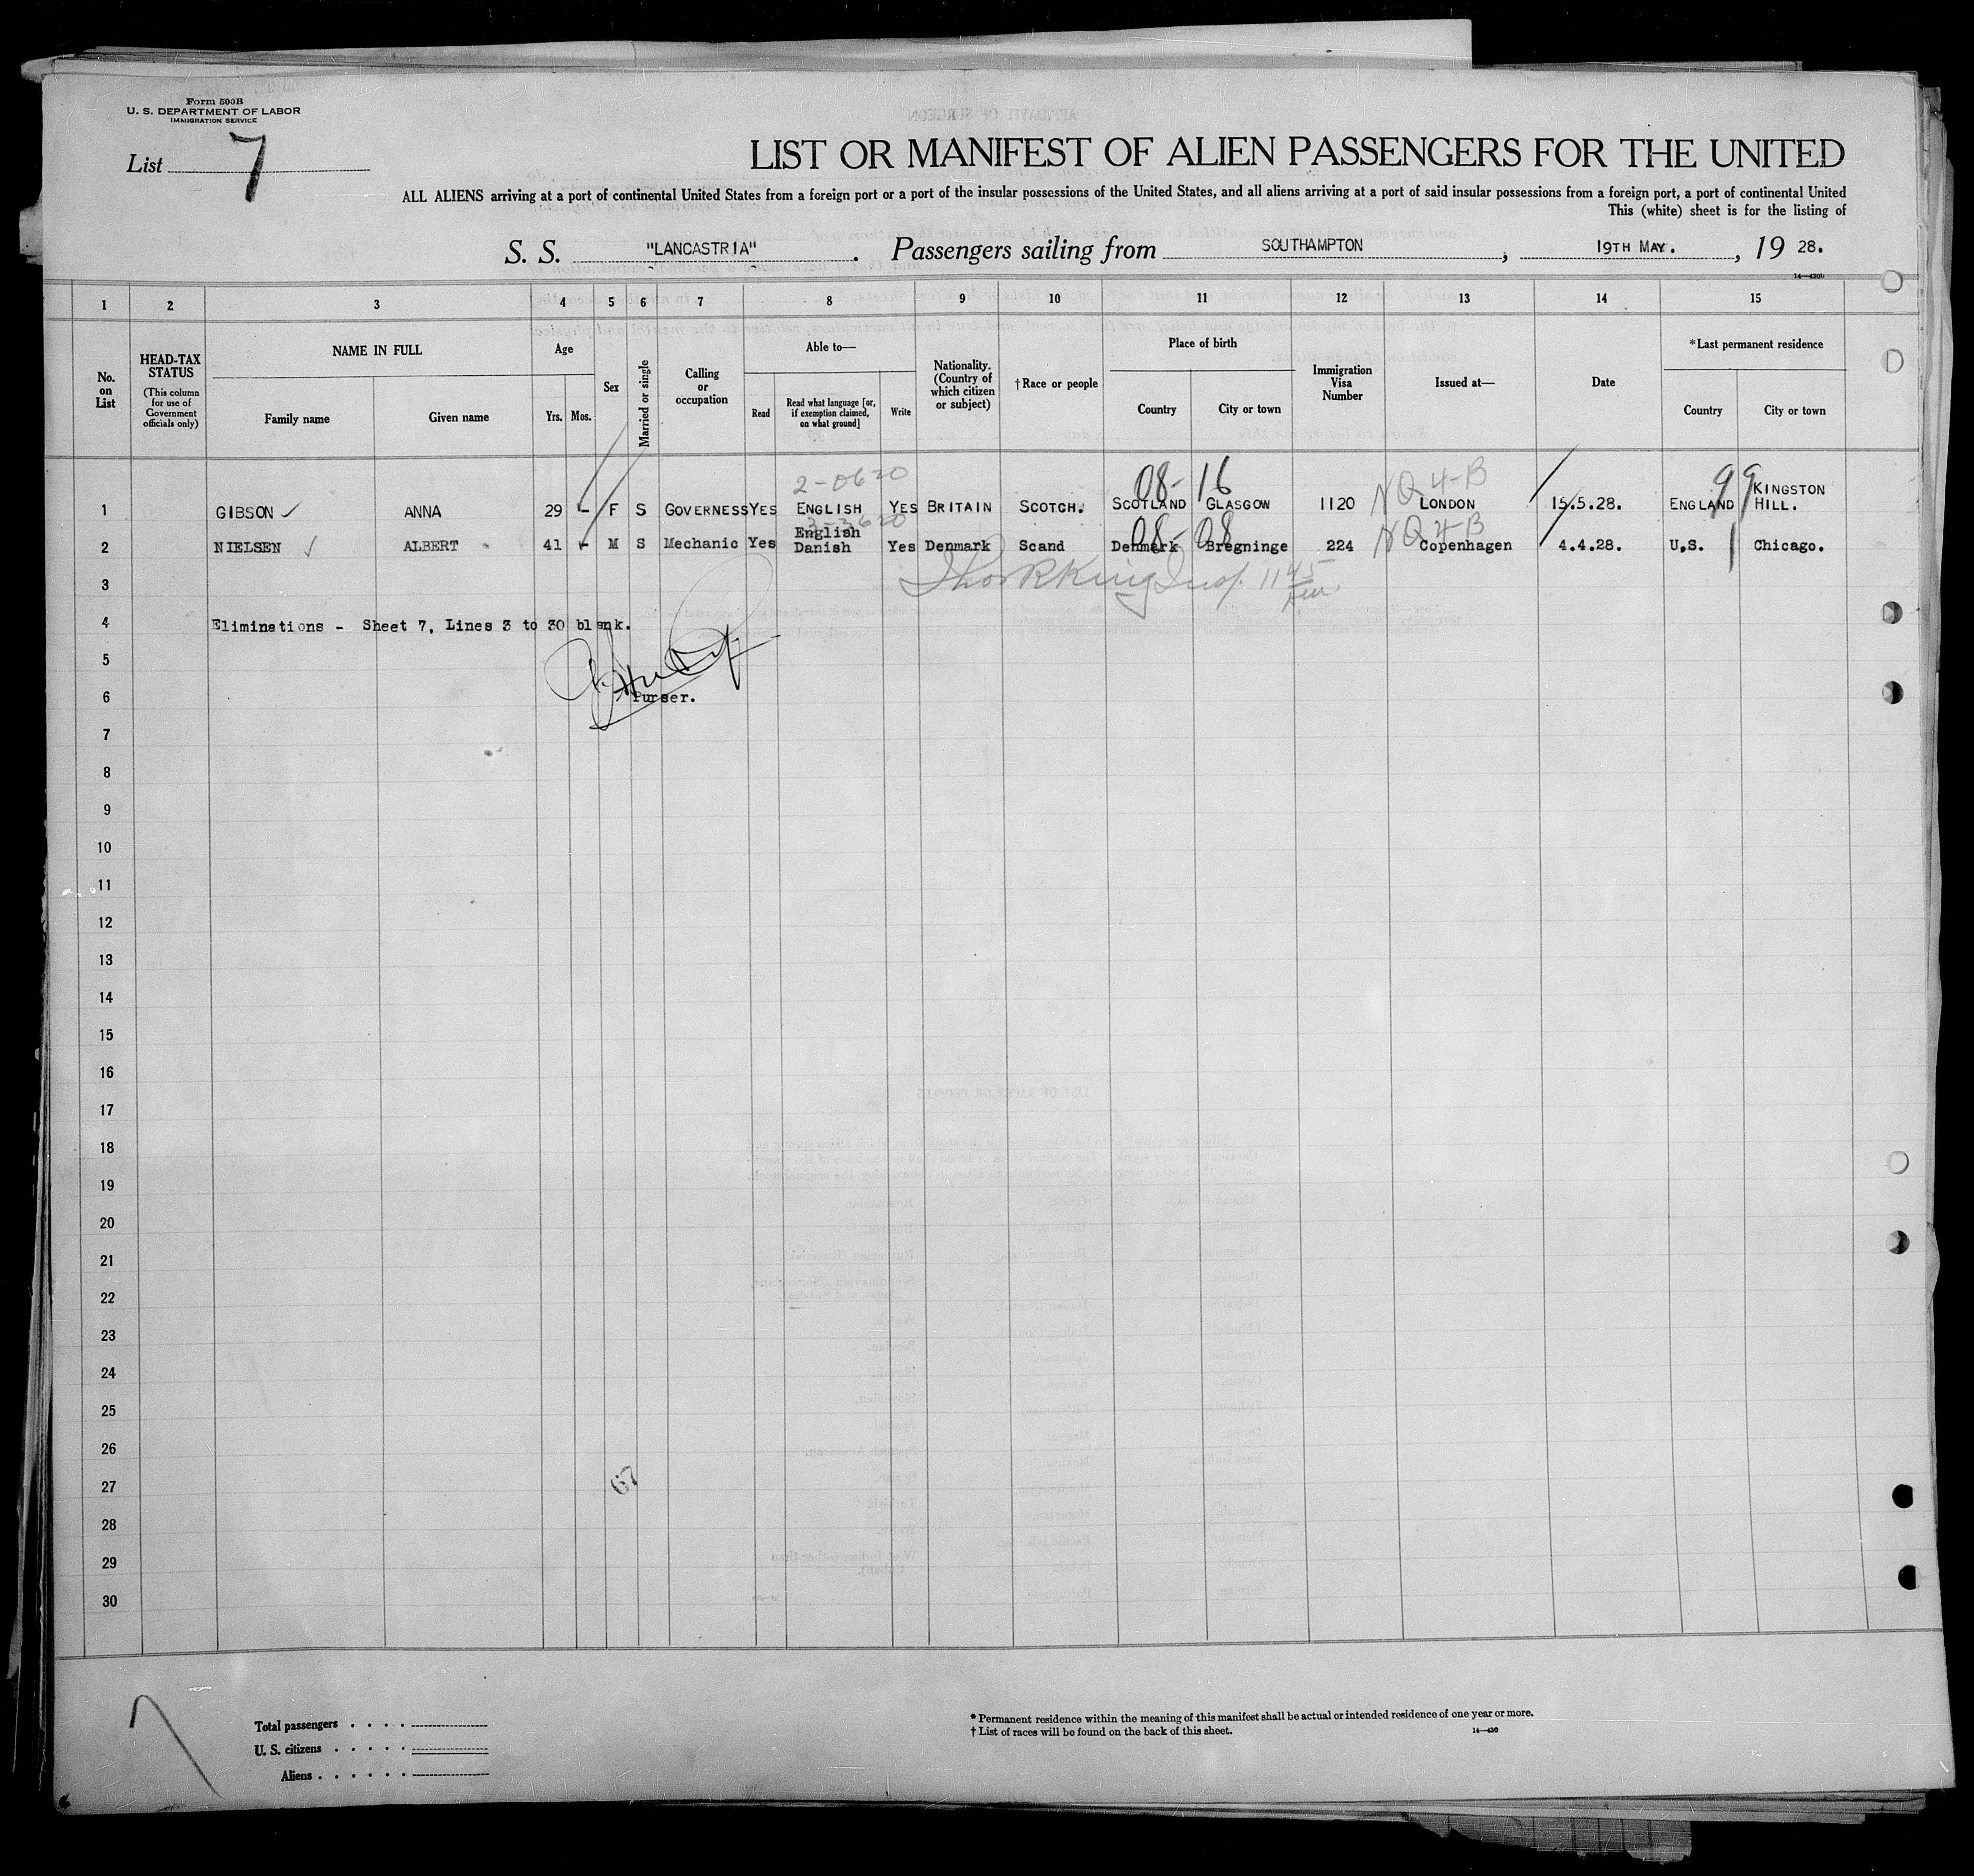 Form 500B
U. S. DEPARTMENT OF LABOR
IMMIGRATION SERVICE
List 7
LIST OR MANIFEST OF ALIEN PASSENGERS FOR THE UNITED
ALL ALIENS arriving at a port of continental United States from a foreign port or a port of the insular possessions of the United States, and all aliens arriving at a port of said insular possessions from a foreign port, a port of continental United
This (white) sheet is for the listing of
S. S. "LANCASTRIA". Passengers sailing from SOUTHAMPTON, 19TH MAY., 19 28.
14—430b
1 2 3 4 5 6 7 8 9 10 11 12 13 14 15
No. on List
HEAD-TAX STATUS (This column for use of Government officials only)
NAME IN FULL
Family name Given name
Age
Yrs. Mos.
Sex
Married or single
Calling or occupation
Able to—
Read Read what language [or, if exemption claimed, on what ground] Write
Nationality. (Country of which citizen or subject)
†Race or people
Place of birth
Country City or town
Immigration Visa Number
Issued at—
Date
*Last permanent residence
Country City or town
2-0620 08-16 NQ 4-B 99
1 GIBSON ✓ ANNA 29 - F S GOVERNESS YES ENGLISH YES BRITAIN SCOTCH. SCOTLAND GLASGOW 1120 LONDON 15.5.28. ENGLAND KINGSTON HILL.
3-3620 08-08 NQ 4-B 1
2 NIELSEN ✓ ALBERT 41 - M S Mechanic Yes English Danish Yes Denmark Scand Denmark Bregninge 224 Copenhagen 4.4.28. U.S. Chicago.
3
4 Eliminations - Sheet 7, Lines 3 to 30 blank.
5
6 Purser.
7
8
9
10
11
12
13
14
15
16
17
18
19
20
21
22
23
24
25
26
27 67
28
29
30
Total passengers
U. S. citizens
Aliens
* Permanent residence within the meaning of this manifest shall be actual or intended residence of one year or more.
† List of races will be found on the back of this sheet.
14—430